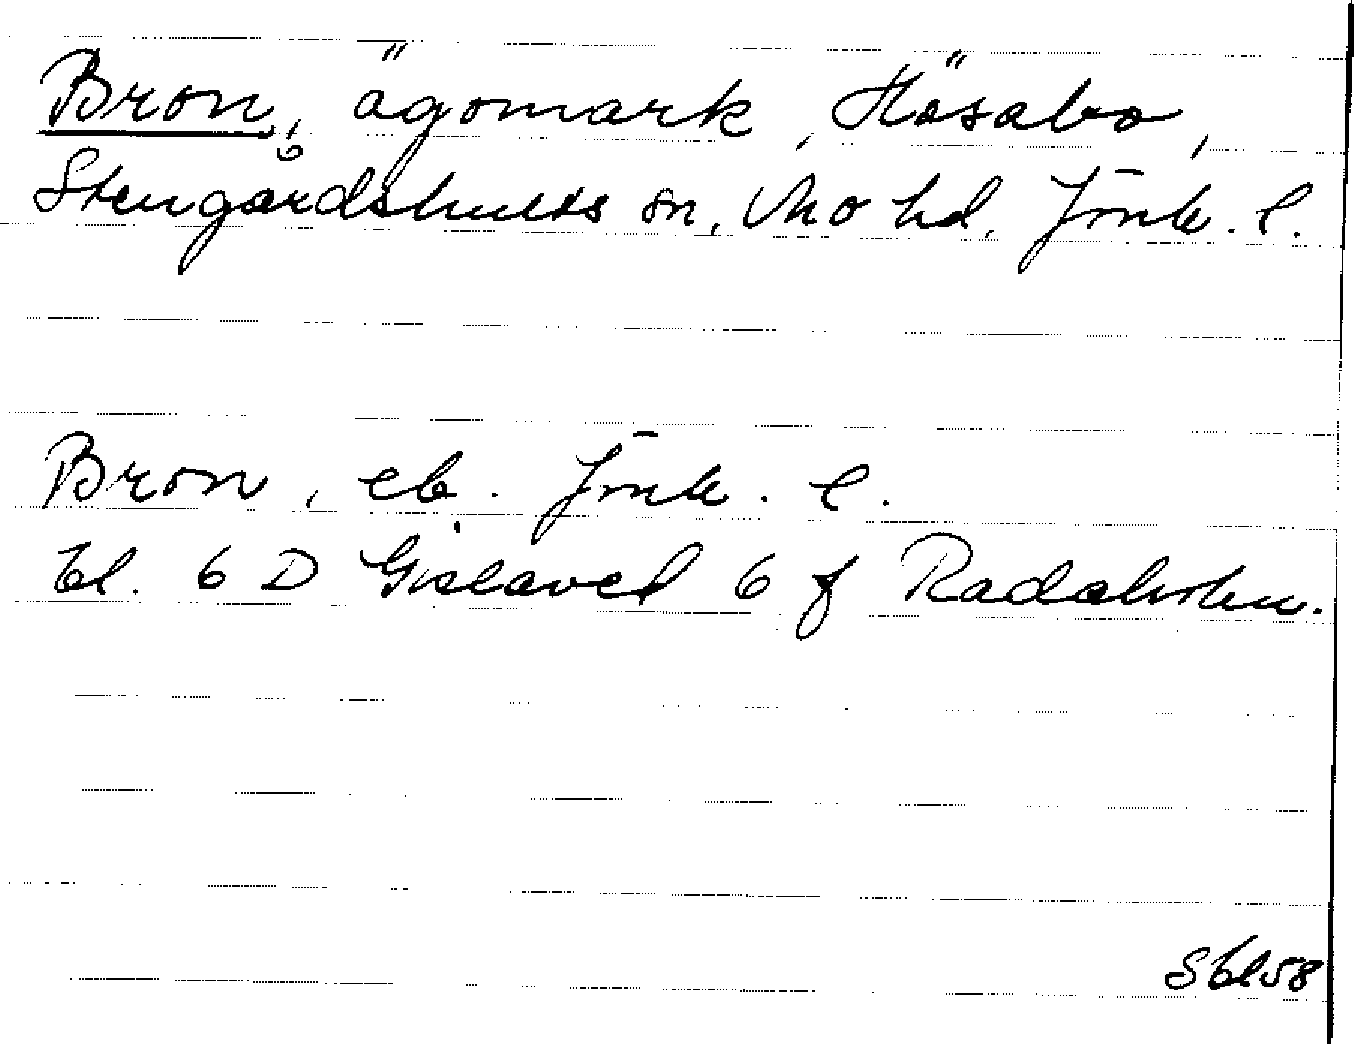 Bron, ägomark, Hösabo,
Stengårdshults sn, Mo hd. Jönk. l.
Bron, eb. Jönk. l.
bl. 6 D Gislaved 6 f Radaholm.
Sbl58